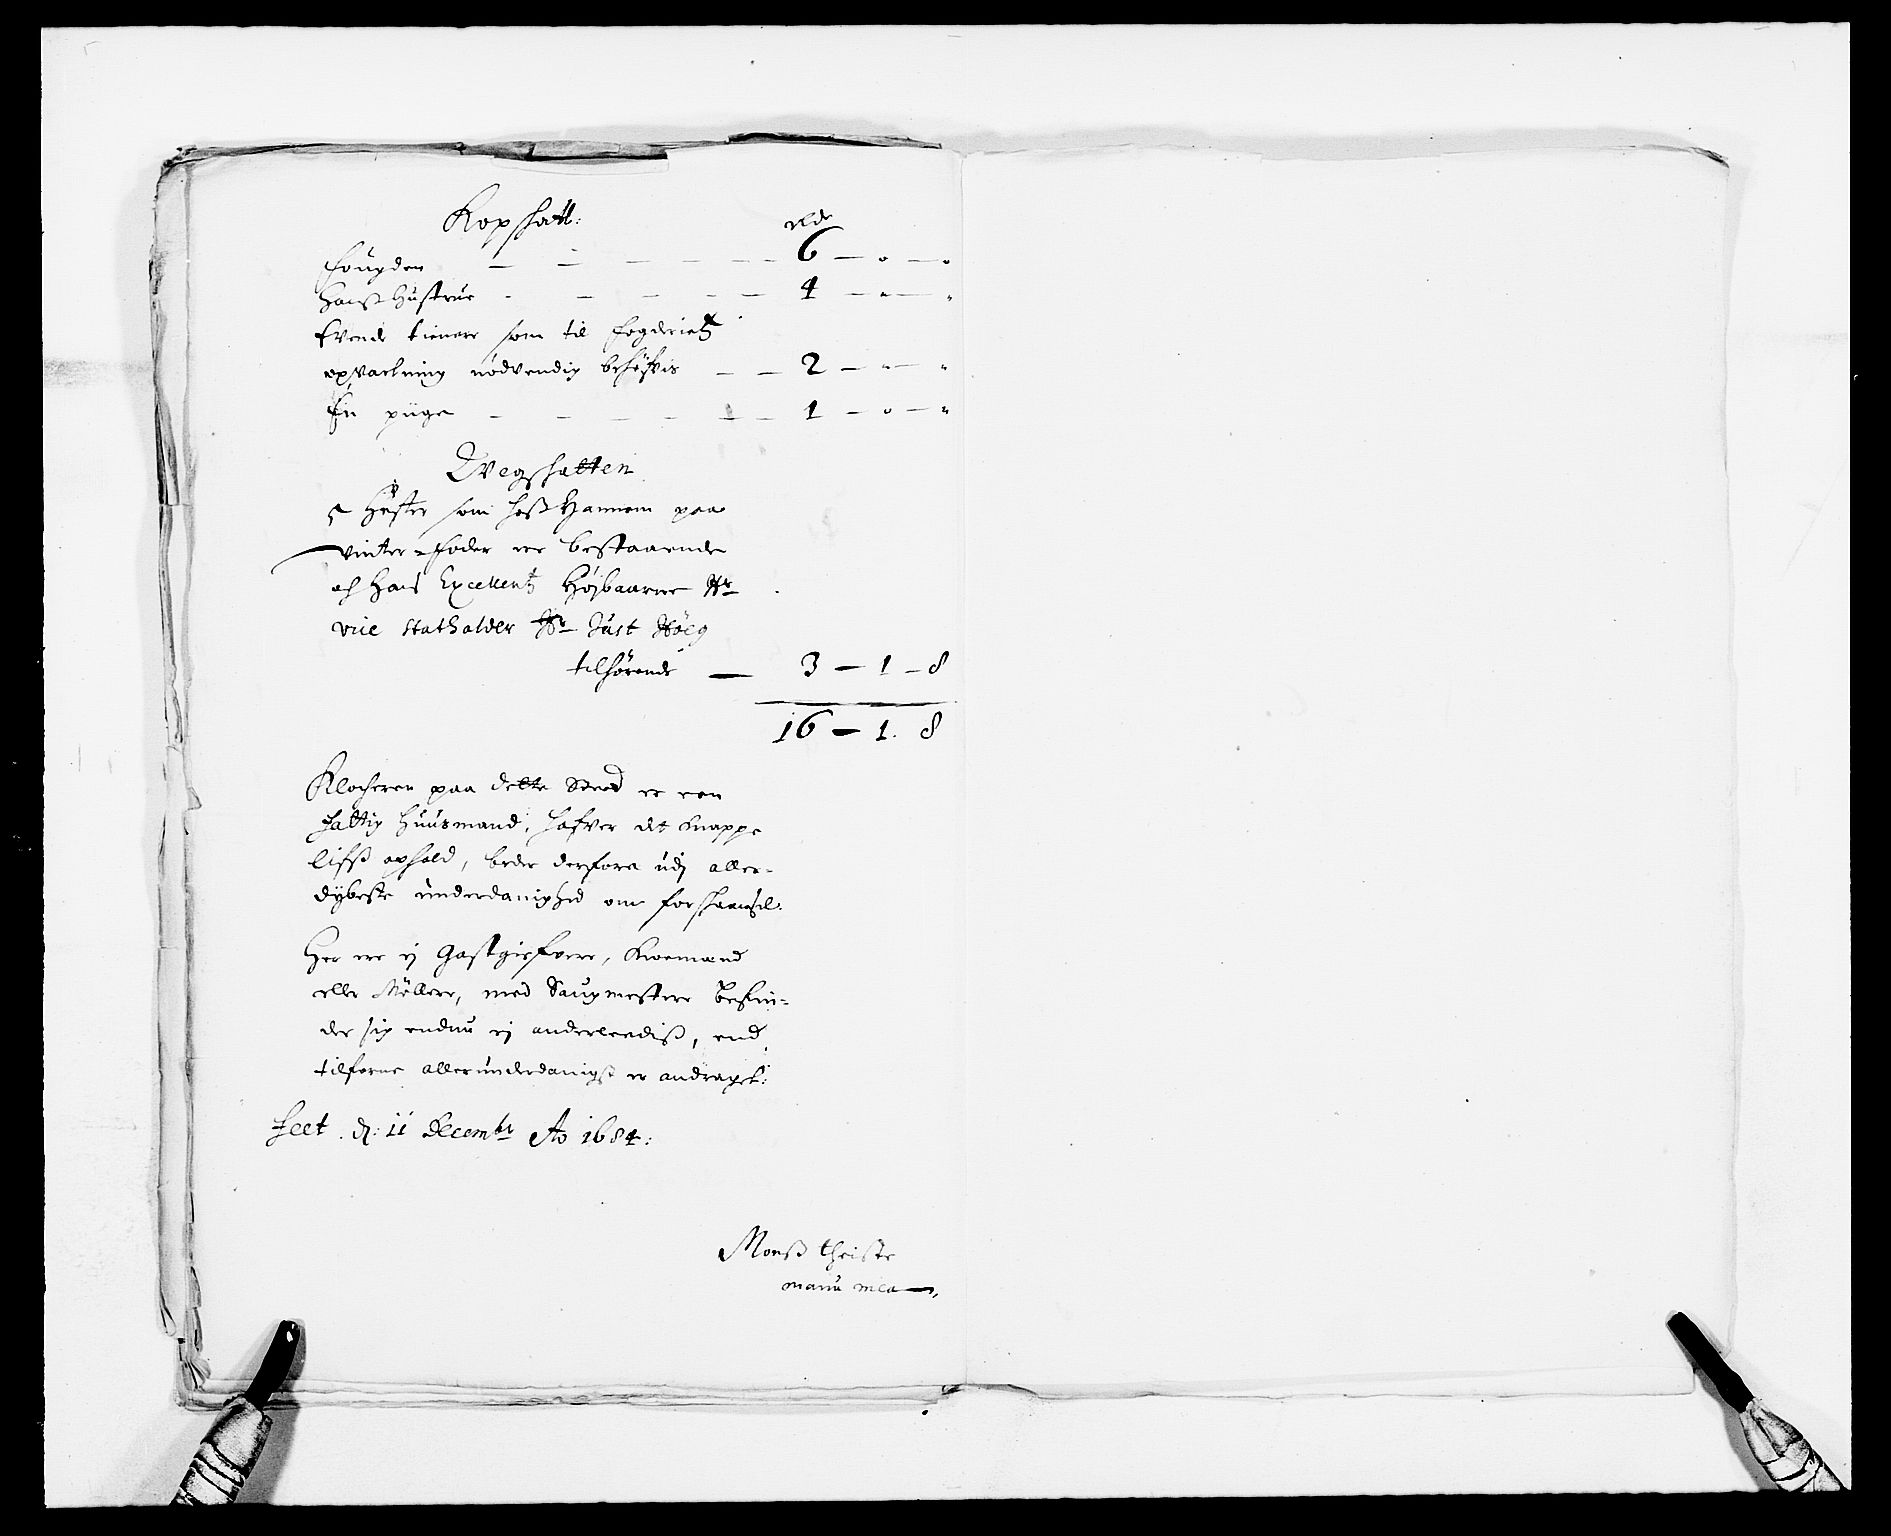 Kopskatt: Rdr
Fougden — — — — — — 6 — o — o
Hanß Hustrue - — — — — 4 — " — "
Tvende tienere som til fogderietz
opvartning nödvendig behöfvis — — 2 — " — "
En piige — — — — — — 1 — o — "
Qvegskatten
5 Hester som hoß Hannem paa
vinter-foder ere bestaaende
och Hans Excellentz Højbaarne Hr
vice Statholder Hr Just Höeg
tilhörende — 3 — 1 — 8
16 — 1. 8
Klocheren paa dette Sted er een
fattig Huusmand, hafver det knappe
lifß ophold, beder derfore udj aller-
dybeste underdanighed om forskaansel.
Her ere ej Gastgifvere, Kroemænd
eller Möllere, med Saugmestere befin-
der sig endnu ej anderleediß, end
tilforne allerunderdanigst er andraget:
Feet. d: 11 Decembr Ao 1684:
Monß theiste
manu mea